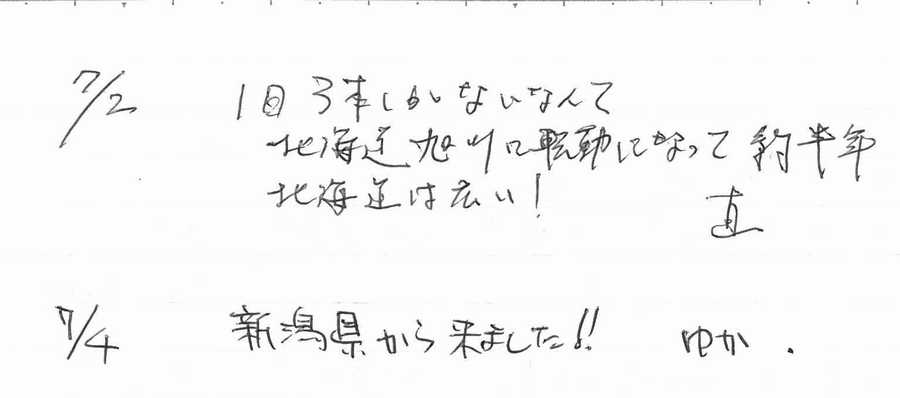 7/2 1日3本しかないなんて
北海道旭川に転動になって約半年
北海道は広い!
直
7/4 新潟県から来ました!! ゆか.